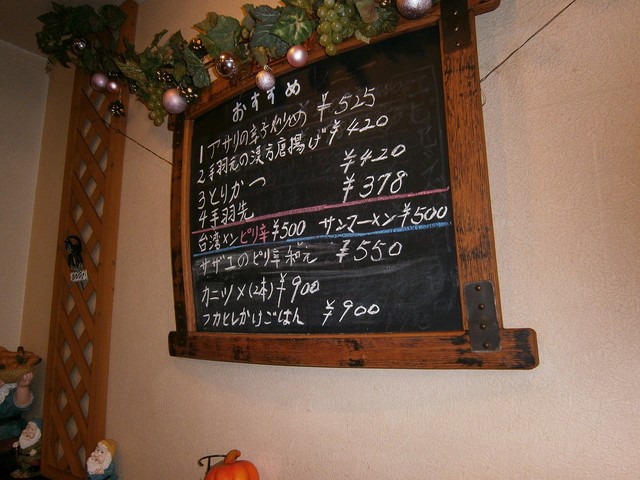 おすすめ
1 アサリの辛子炒め ¥525
2 手羽元の漢方唐揚げ ¥420
3 とりかつ ¥420
4 手羽先 ¥378
台湾メンピリ辛 ¥500 サンマーメン ¥500
サザエのピリ辛和え ¥550
カニツメ(2本) ¥900
フカヒレかけごはん ¥900